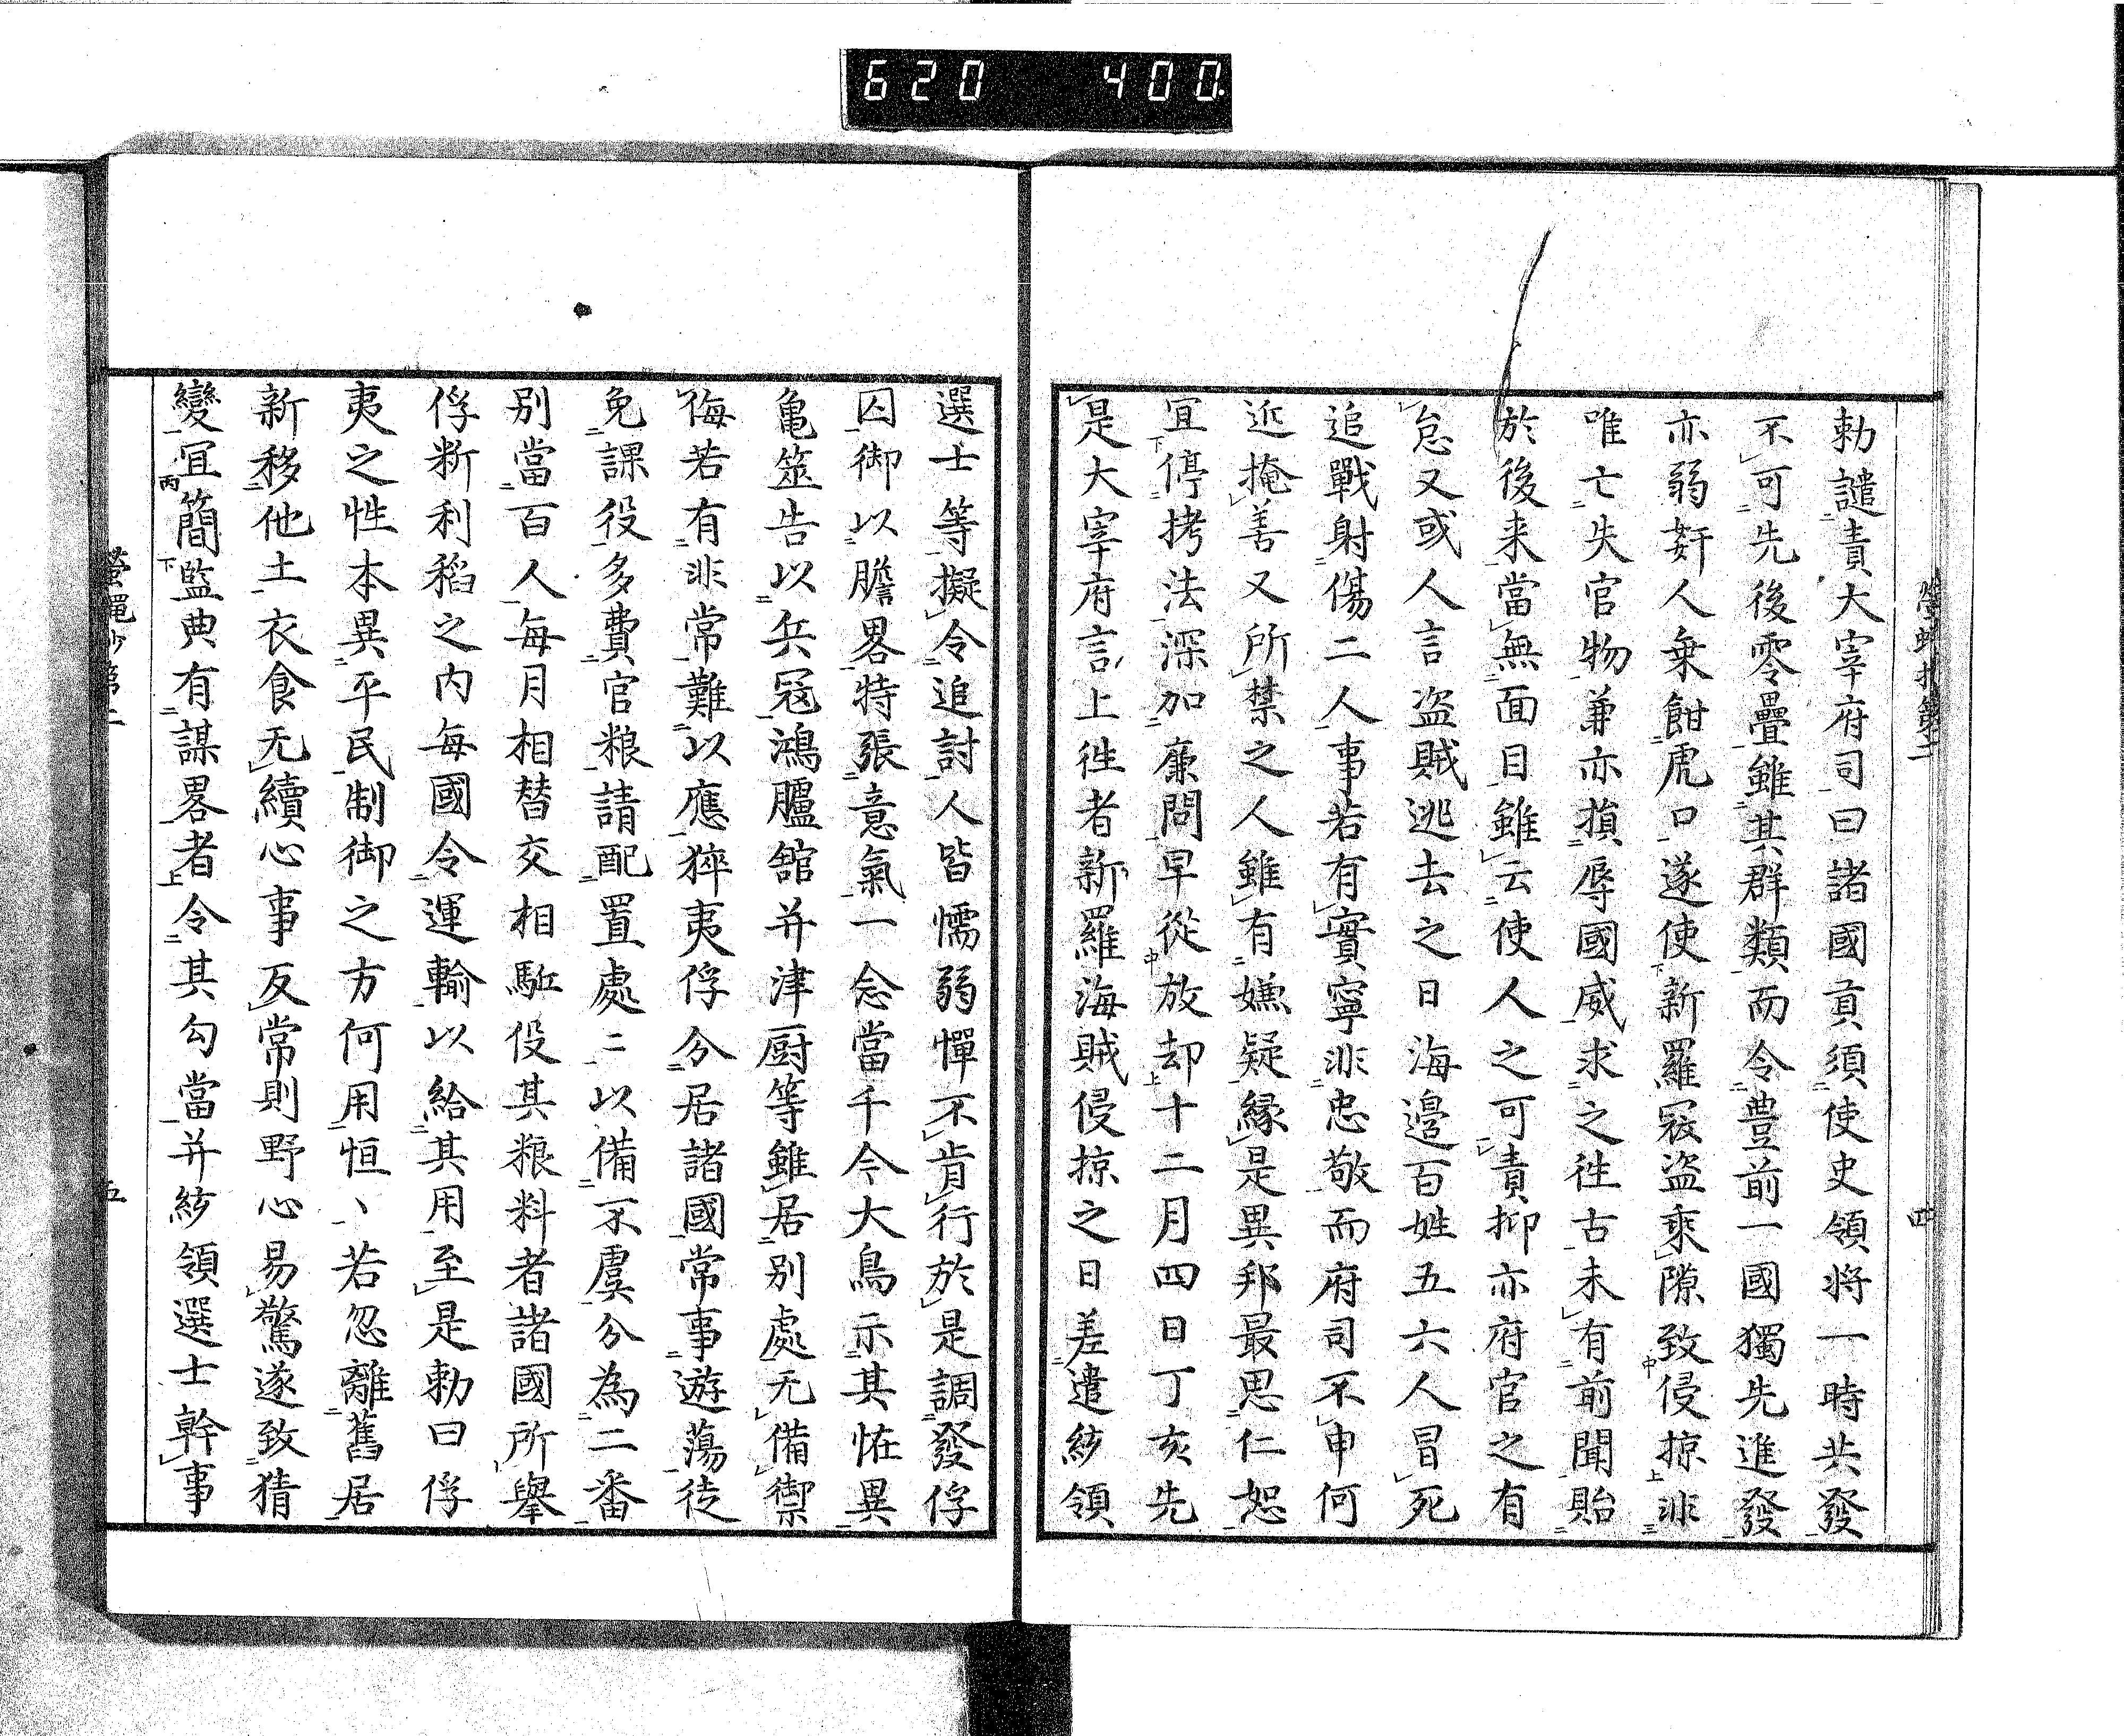 620 400.
螢蠅抄第二 四
勅譴責大宰府司曰諸國貢須使吏領將一時共發
不可先後零疊雖其群類而令豊前一國獨先進發
亦弱奸人乗餌虎口遂使新羅冦盗乘隙致侵掠非
唯亡失官物兼亦損辱國威求之徃古未有前聞貽
於後来當無面目雖云使人之可責抑亦府官之有
怠又或人言盗賊逃去之日海邉百姓五六人冒死
追戰射傷二人事若有實寧非忠敬而府司不申何
近掩善又所禁之人雖有嫌疑縁是異邦最思仁恕
宜停拷法深加廉問早從放却十二月四日丁亥先
是大宰府言上徃者新羅海賊侵掠之日差遣綂領
選士等擬令追討人皆懦弱憚不肯行於是調發俘
囚御以膽畧特張意氣一念當千今大鳥示其恠異
亀筮告以兵冦鴻臚舘并津厨等雖居別處无備禦
侮若有非常難以應猝夷俘分居諸國常事遊蕩徒
免課役多費官粮請配置處〻以備不虞分為二番
別當百人毎月相替交相駈役其粮料者諸國所擧
俘断利稻之内毎國令運輸以給其用至是勅曰俘
夷之性本異平民制御之方何用恒、若忽離舊居
新移他土衣食无續心事反常則野心易驚遂致猜
變宜簡監典有謀畧者令其勾當并綂領選士幹事
螢蠅抄第二 五